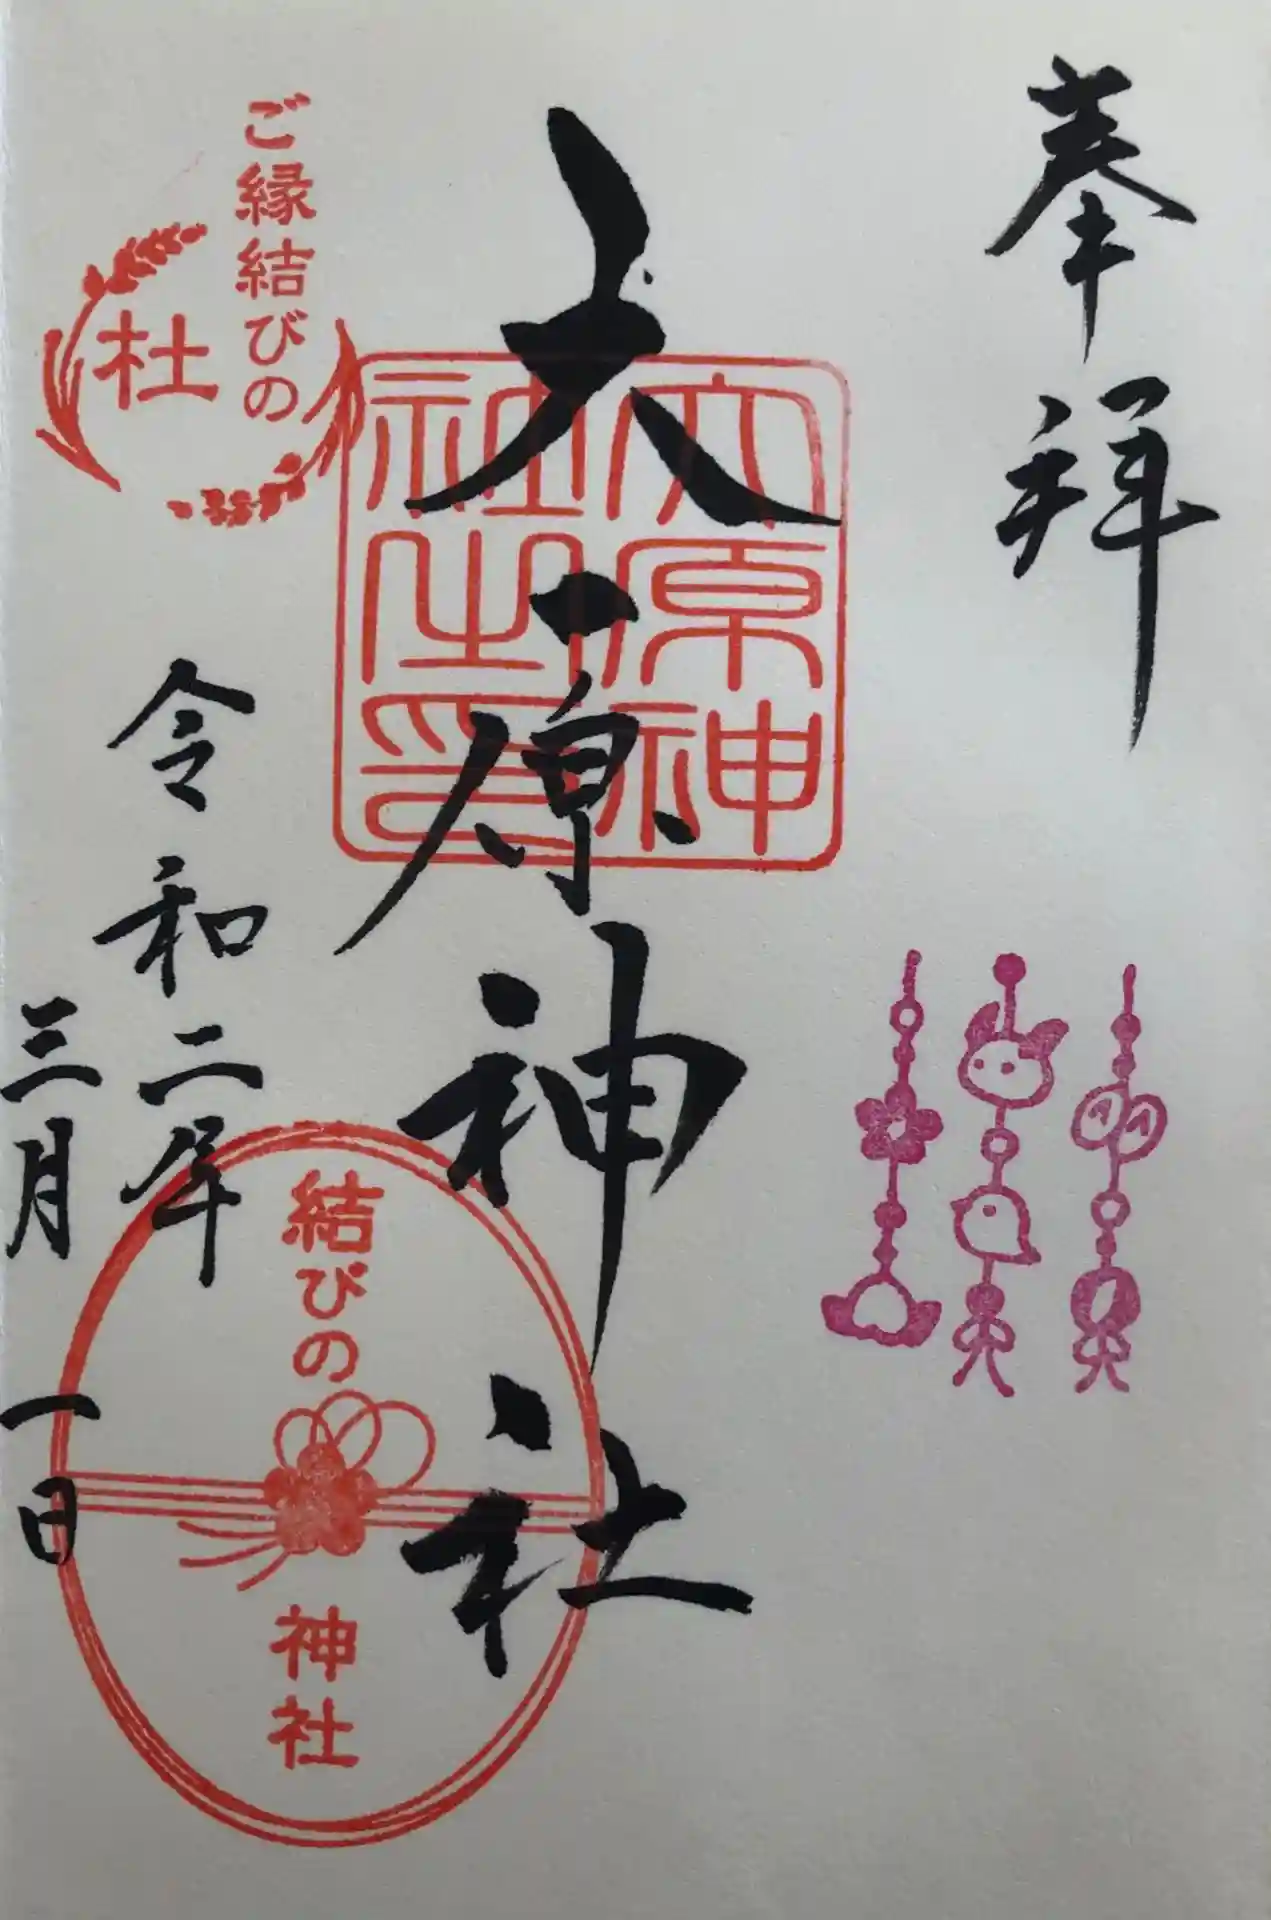 奉拝
大原神社
大原神
社之印
ご縁結びの
杜
令和二年
三月一日
結びの
神社